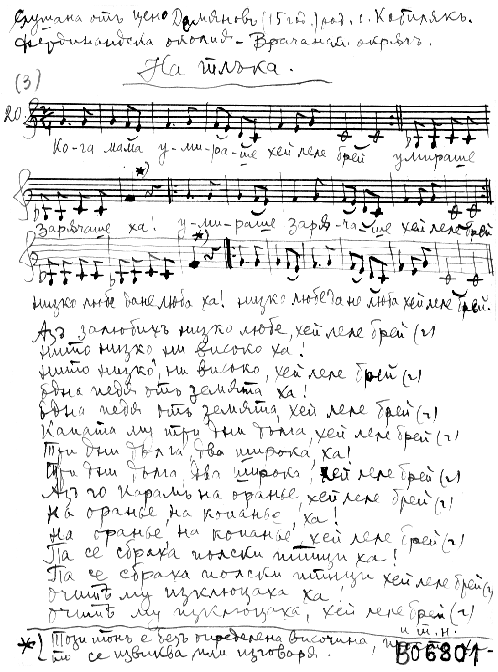 Слушана отъ Цено Демяновъ (15 год.) род. с. Котилякъ.
Фердинандска околия - Врачански окрѫгъ.
На тлъка.
(3)
20.
Ко-га мама у-ми-ра-ше хей леле брей умираше
Зарѫчаше ха! у-ми-раше Зарѫ-ча-ше хей леле брей
*)
низко любе да не люба ха! низко любе да не люба хей леле брей.
Азъ залюбихъ низко любе, хей леле брей (2)
нито низко ни високо ха!
нито низко, ни високо, хей леле брей (2)
една педя отъ земята ха!
една педя отъ земята, хей леле брей (2)
Капата му три дни дълга, хей леле брей (2)
Три дни дълга, два широка, ха!
Три дни дълга, два широка, хей леле брей (2)
Азъ го карамъ на оранье, хей леле брей (2)
на оранье, на копанье, ха!
На оранье, на копанье, хей леле брей (2)
Па се сбраха полски птици ха!
Па се сбраха полски птици хей леле брей (2)
очитѣ му изклюцаха ха!
очитѣ му изклюцаха, хей леле брей (2)
и т.н.
*) Този тонъ е безъ определена височина,
той се извиква или изговоря.
В06801